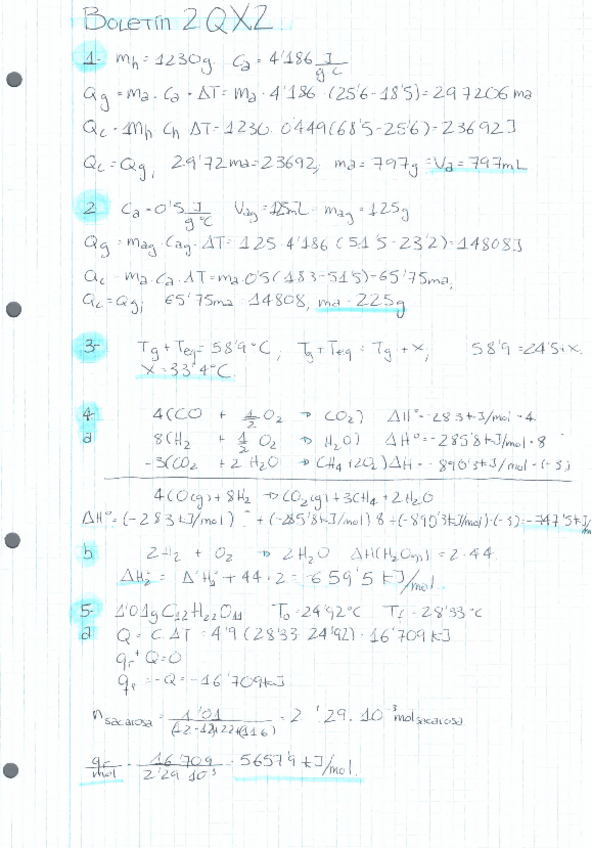 BOLETÍN 2 QXZ
1- mh = 1230g Ca = 4'186 J/g°C
Qg = ma · Ca · ΔT = ma · 4'186 · (25'6 - 18'5) = 29'7206 ma
Qc = mh Ch ΔT = 1230 · 0'449 (68'5 - 25'6) = 23692 J
Qc = Qg; 29'72 ma = 23692; ma = 797g = Va = 797mL
2 Ca = 0'5 J/g°C Vag = 125mL mag = 125g
Qg = mag · Cag · ΔT = 125 · 4'186 (51'5 - 23'2) = 14808 J
Qc = ma · Ca · ΔT = ma · 0'5 (183 - 51'5) = 65'75ma;
Qc = Qg; 65'75ma = 14808; ma = 225g
3- Tg + Teq = 58'9°C; Tg + Teq = Tg + x; 58'9 = 24'5 + x.
x = 33'4°C
4- 4(CO + 1/2 O2 → CO2) ΔH° = -283 kJ/mol · 4
a 8(H2 + 1/2 O2 → H2O) ΔH° = -285'8 kJ/mol · 8
-3(CO2 + 2 H2O → CH4 + 2O2) ΔH = -890'3 kJ/mol · (-3)
4CO(g) + 8H2 → CO2(g) + 3CH4 + 2H2O
ΔH° = (-283 kJ/mol) + (-285'8 kJ/mol) 8 + (-890'3 kJ/mol) · (-3) = -747'5 kJ/m
b 2H2 + O2 → 2H2O ΔH(H2O(g)) = 2 · 44
ΔH2 = ΔH + 44 · 2 = -659'5 kJ/mol
5- 1'01g C12H22O11 T0 = 24'92°C Tf = 28'33°C
a Q = C · ΔT = 4'9 (28'33 - 24'92) = 16'709 kJ
qr + Q = 0
qr = -Q = -16'709 kJ
n sacarosa = 1'01 / (12·12+22+11·16) = 2'29 · 10⁻³ mol sacarosa
qr/mol = 16'709 / 2'29 10⁻³ = 5657'9 kJ/mol.